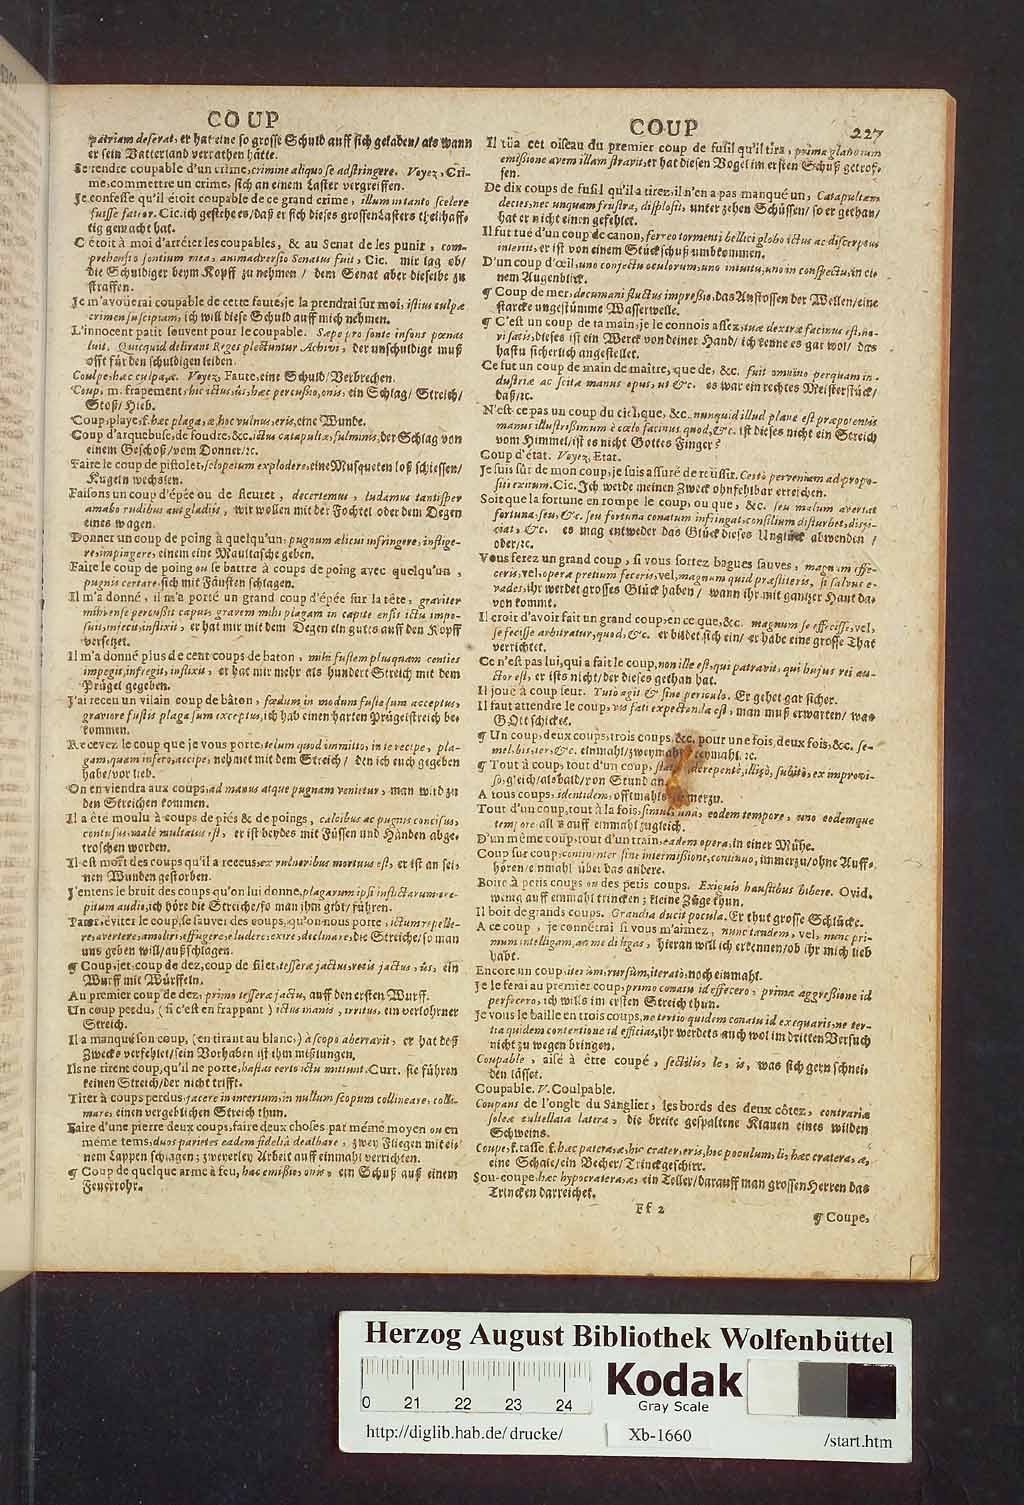 COUP
patriam deserat, er hat eine so grosse Schuld auff sich geladen/ als wann
er sein Vatterland verrathen hätte.
Se rendre coupable d'un crime, crimine aliquo se adstringere. Voyez, Cri-
me, commettre un crime, sich an einem Laster vergreiffen.
Je confesse qu'il étoit coupable de ce grand crime, illum in tanto scelere
fuisse fateor. Cic. ich gestehe es/ daß er sich dieses grossen Lasters theilhaff-
tig gemacht hat.
C étoit à moi d'arréter les coupables, & au Senat de les punir, com-
prehensio sontium mea, animadversio Senatus fuit, Cic. mir lag ob/
die Schuldiger beym Kopff zu nehmen / dem Senat aber dieselbe zu
straffen.
Je m'avoüerai coupable de cette faute, je la prendrai sur moi, istius culpæ
crimen suscipiam, ich will diese Schuld auff mich nehmen.
L'innocent patit souvent pour le coupable. Sæpe pro sonte insons pœnas
luit. Quicquid delirant Reges plectuntur Achivi, der unschuldige muß
offt für den schuldigen leiden.
Coulpe, hæc culpa, æ. Voyez, Faute, eine Schuld/ Verbrechen.
Coup, m. frapement, hic ictus, ûs, hæc percussio, onis, ein Schlag/ Streich/
Stoß/ Hieb.
Coup, playe, f. hæc plaga, æ, hoc vulnus, eris, eine Wunde.
Coup d'arquebuse, de foudre, &c. ictus catapultæ, fulminis, der Schlag von
einem Geschoß/ vom Donner/ ꝛc.
Faire le coup de pistolet, sclopetum explodere, eine Musqueten loß schiessen/
Kugeln wechslen.
Faisons un coup d'épée ou de fleuret, decertemus, ludamus tantisper
ambo rudibus aut gladiis, wir wollen mit der Fochtel oder dem Degen
eines wagen.
Donner un coup de poing à quelqu'un, pugnum alicui infringere, inflige-
re, impingere, einem eine Maultasche geben.
Faire le coup de poing ou se battre à coups de poing avec quelqu'un,
pugnis certare, sich mit Fäusten schlagen.
Il m'a donné, il m'a porté un grand coup d'épée sur la tête, graviter
mihi ense percussit caput, gravem mihi plagam in capite ensis ictu impo-
suit, injecit, inflixit, er hat mir mit dem Degen ein guts auff den Kopff
versetzet.
Il m'a donné plus de cent coups de baton, mihi fustem plusquam centies
impegit, infregit, inflixit, er hat mir mehr als hundert Streich mit dem
Prügel gegeben.
J'ai receu un vilain coup de bâton, fœdum in modum fuste sum acceptus,
graviore fustis plaga sum exceptus, ich hab einen harten Prügelstreich be-
kommen.
Recevez le coup que je vous porte, telum quod immitto, in te recipe, pla-
gam, quam infero, accipe, nehmet mit dem Streich/ den ich euch gegeben
habe/ vor lieb.
On en viendra aux coups, ad manus atque pugnam venietur, man wird zu
den Streichen kommen.
Il a été moulu à coups de piés & de poings, calcibus ac pugnis concisus,
contusus, malè multatus est, er ist beydes mit Füssen und Händen abge-
troschen worden.
Il est mort des coups qu'il a receus, ex vulneribus mortuus est, er ist an sei-
nen Wunden gestorben.
J'entens le bruit des coups qu'on lui donne, plagarum ipsi inflictarum cre-
pitum audio, ich höre die Streiche/ so man ihm gibt/ führen.
Parer, éviter le coup, se sauver des coups, qu'on nous porte, ictum repelle-
re, avertere, amoliri, effugere, eludere, exire, declinare, die Streiche/ so man
uns geben will/ außschlagen.
¶ Coup, jet, coup de dez, coup de filet, tesseræ jactus, retis jactus, ûs, ein
Wurff mit Würffeln.
Au premier coup de dez, primo tesseræ jactu, auff den ersten Wurff.
Un coup perdu, (si c'est en frappant) ictus inanis, irritus, ein verlohrner
Streich.
Il a manqué son coup, (en tirant au blanc,) à scopo aberravit, er hat deß
Zwecks verfehlet/ sein Vorhaben ist ihm mißlungen.
Ils ne tirent coup, qu'il ne porte, hastas certo ictu mittunt. Curt. sie führen
keinen Streich/ der nicht trifft.
Titer à coups perdus, jacere in incertum, in nullum scopum collineare, colli-
mare, einen vergeblichen Streich thun.
Faire d'une pierre deux coups, faire deux choses par même moyen ou en
même tems, duos parietes eadem fideliâ dealbare, zwey Fliegen mit ei-
nem Lappen schlagen; zweyerley Arbeit auff einmahl verrichten.
¶ Coup de quelque arme à feu, hæc emissio, onis, ein Schuß auß einem
Feuerrohr.
COUP 227
Il tüa cet oiseau du premier coup de fusil qu'il tira, primæ glandium
emissione avem illam stravit, er hat diesen Vogel im ersten Schuß getrof-
fen.
De dix coups de fusil qu'il a tirez, il n'en a pas manqué un, Catapultam
decies, nec unquam frustra, displosit, unter zehen Schüssen/ so er gethan/
hat er nicht einen gefehlet.
Il fut tué d'un coup de canon, ferreo tormenti bellici globo ictus ac discerptus
interiit, er ist von einem Stückschuß umbkommen.
D'un coup d'œil, uno conjectu oculorum, uno intuitu, uno in conspectu, in ei-
nem Augenblick.
¶ Coup de mer, decumani fluctus impressio, das Anstossen der Wellen/ eine
starcke ungestümme Wasserwelle.
¶ C'est un coup de ta main, je le connois assez, tuæ dextræ facinus est, no-
vi satis, dieses ist ein Werck von deiner Hand/ ich kenne es gar wol/ das
hastu sicherlich angestellet.
Ce fut un coup de main de maître, que de, &c. fuit omnino perquam in-
dustriæ ac scitæ manus opus, ut &c. es war ein rechtes Meisterstück/
daß/ ꝛc.
N'est-ce pas un coup du ciel, que, &c. nunquid illud planè est præpotentis
manus illustrissimum è cœlo facinus, quod, &c. ist dieses nicht ein Streich
vom Himmel/ ist es nicht Gottes Finger?
Coup d'état. Voyez, Etat.
Je suis sûr de mon coup, je suis assuré de reüssir. Certò perveniam ad propo-
siti exitum. Cic. Ich werde meinen Zweck ohnfehlbar erreichen.
Soit que la fortune en rompe le coup, ou que, &c. seu malum avertat
fortuna, seu, &c. seu fortuna conatum infringat, consilium disturbet, disji-
ciat, &c. es mag entweder das Glück dieses Unglück abwenden /
oder/ ꝛc.
Vous ferez un grand coup, si vous sortez bagues sauves, magnum effe-
ceris, vel, operæ pretium feceris, vel, magnum quid præstiteris, si salvus e-
vades, ihr werdet grosses Glück haben/ wann ihr mit gantzer Haut da-
von kommt.
Il croit d'avoir fait un grand coup, en ce que, &c. magnum se effecisse, vel,
se fecisse arbitratur, quod, &c. er bildet sich ein/ er habe eine grosse That
verrichtet.
Ce n'est pas lui, qui a fait le coup, non ille est, qui patravit, qui hujus rei au-
ctor est, er ists nicht/ der dieses gethan hat.
Il joue à coup seur. Tutò agit & sine periculo. Er gehet gar sicher.
Il faut attendre le coup, vis fati expectanda est, man muß erwarten/ was
GOtt schicket.
¶ Un coup, deux coups, trois coups, &c. pour une fois, deux fois, &c. se-
mel, bis, ter, &c. einmahl/ zweymahl/ dreymahl/ ꝛc.
¶ Tout à coup, tout d'un coup, derepentè, illicò, subitò, ex improvi-
so, gleich/ alsbald/ von Stund an.
A tous coups, identidem, offtmahls/ immerzu.
Tout d'un coup, tout à la fois, simul, unà, eodem tempore, uno eodemque
tempore alles auff einmahl zugleich.
D'un même coup, tout d'un train, eadem opera, in einer Mühe.
Coup sur coup, continenter sine intermissione, continuò, immerzu/ ohne Auff-
hören/ einmahl über das andere.
Boire à petis coups ou des petis coups. Exiguis haustibus bibere. Ovid.
wenig auff einmahl trincken; kleine Züge thun.
Il boit de grands coups. Grandia ducit pocula. Er thut grosse Schlücke.
A ce coup, je connétrai si vous m'aimez, nunc tandem, vel, nunc pri-
mùm intelligam, an me diligas, hieran will ich erkennen/ ob ihr mich lieb
habt.
Encore un coup, iterùm, rursùm, iteratò, noch einmahl.
Je le ferai au premier coup, primo conatu id effecero, primæ aggressione id
perfecero, ich wills im ersten Streich thun.
Je vous le baille en trois coups, ne tertio quidem conatu id exequaris, ne ter-
tia quidem contentione id efficias, ihr werdets auch wol im dritten Versuch
nicht zu wegen bringen.
Coupable, aisé à être coupé, sectilis, le, is, was sich gern schnei-
den lässet.
Coupable. V. Coulpable.
Coupans de l'ongle du Sanglier, les bords des deux côtez, contraria
soleæ cultellata latera, die breite gespaltene Klauen eines wilden
Schweins.
Coupe, f. tasse, f. hæc patera, æ, hic crater, eris, hoc poculum, li, hæc cratera, æ,
eine Schale/ ein Becher/ Trinckgeschirr.
Sou-coupe, hæc hypocratera, æ, ein Teller/ darauff man grossen Herren das
Trincken darreichet.
Ff 2
¶ Coupe,
Herzog August Bibliothek Wolfenbüttel
0 21 22 23 24
Kodak
Gray Scale
http://diglib.hab.de/drucke/ Xb-1660 /start.htm